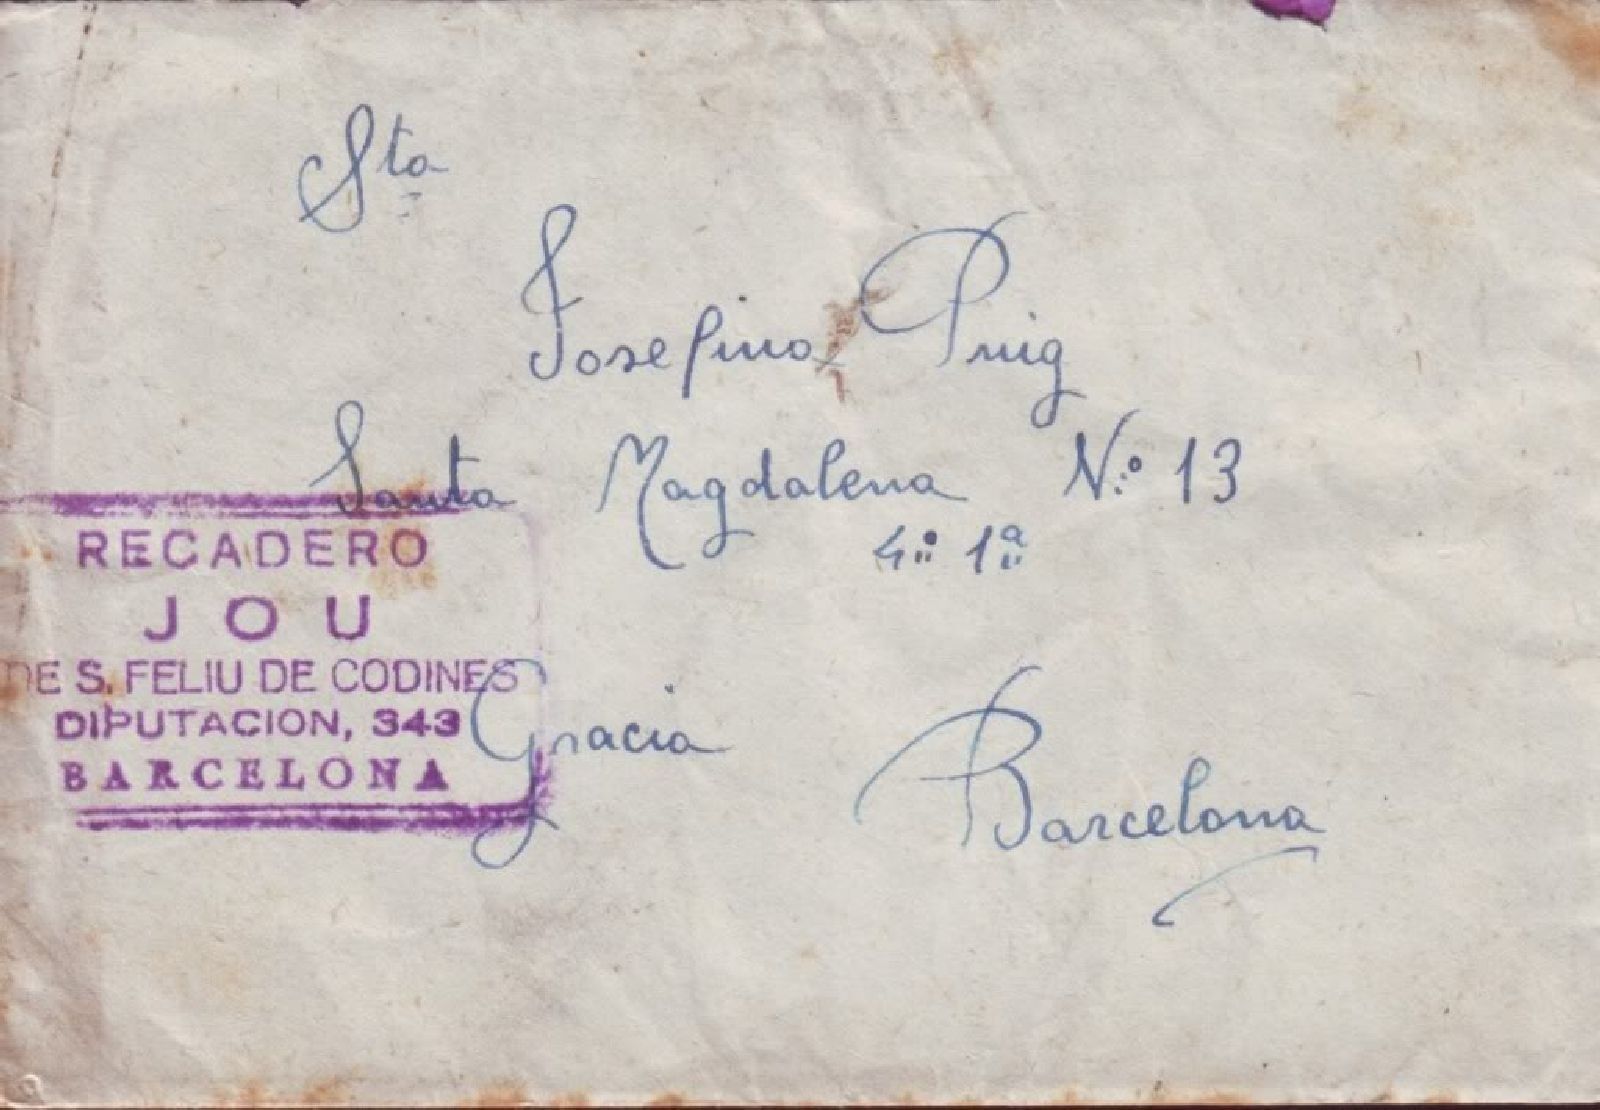 Sta
Josefina Puig
Santa Magdalena Nº 13
4º 1ª
RECADERO
JOU
DE S. FELIU DE CODINES
DIPUTACION, 343
BARCELONA
Gracia
Barcelona